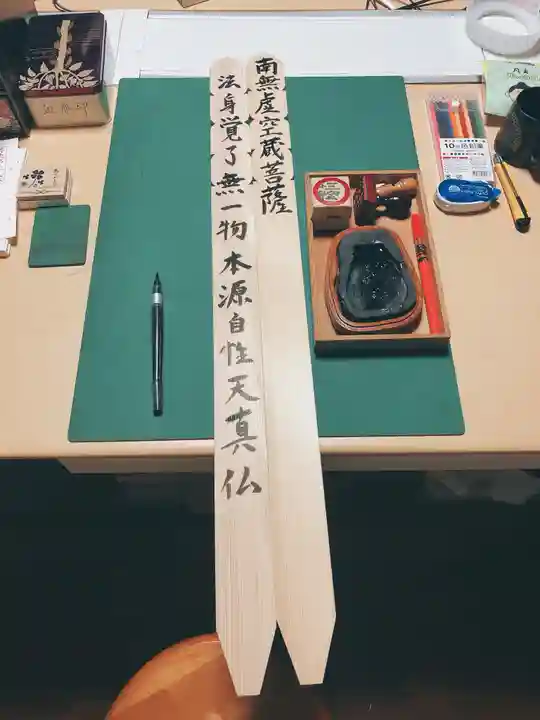 南無虚空蔵菩薩
法身覚了無一物本源自性天真仏
10色鉛筆